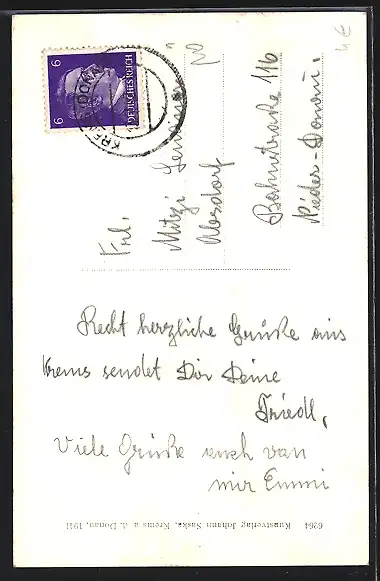 6
6
DEUTSCHES REICH
KREMS (DONAU
Frl.
Mitzi
Absdorf
Bahnstraße 116
Nieder-Donau.
Recht herzliche Grüße aus
Krems sendet Dir Deine
Friedl,
Viele Grüße auch von
mir Emmi
6264 Kunstverlag Johann Saska, Krems a. d. Donau, 1941
4€